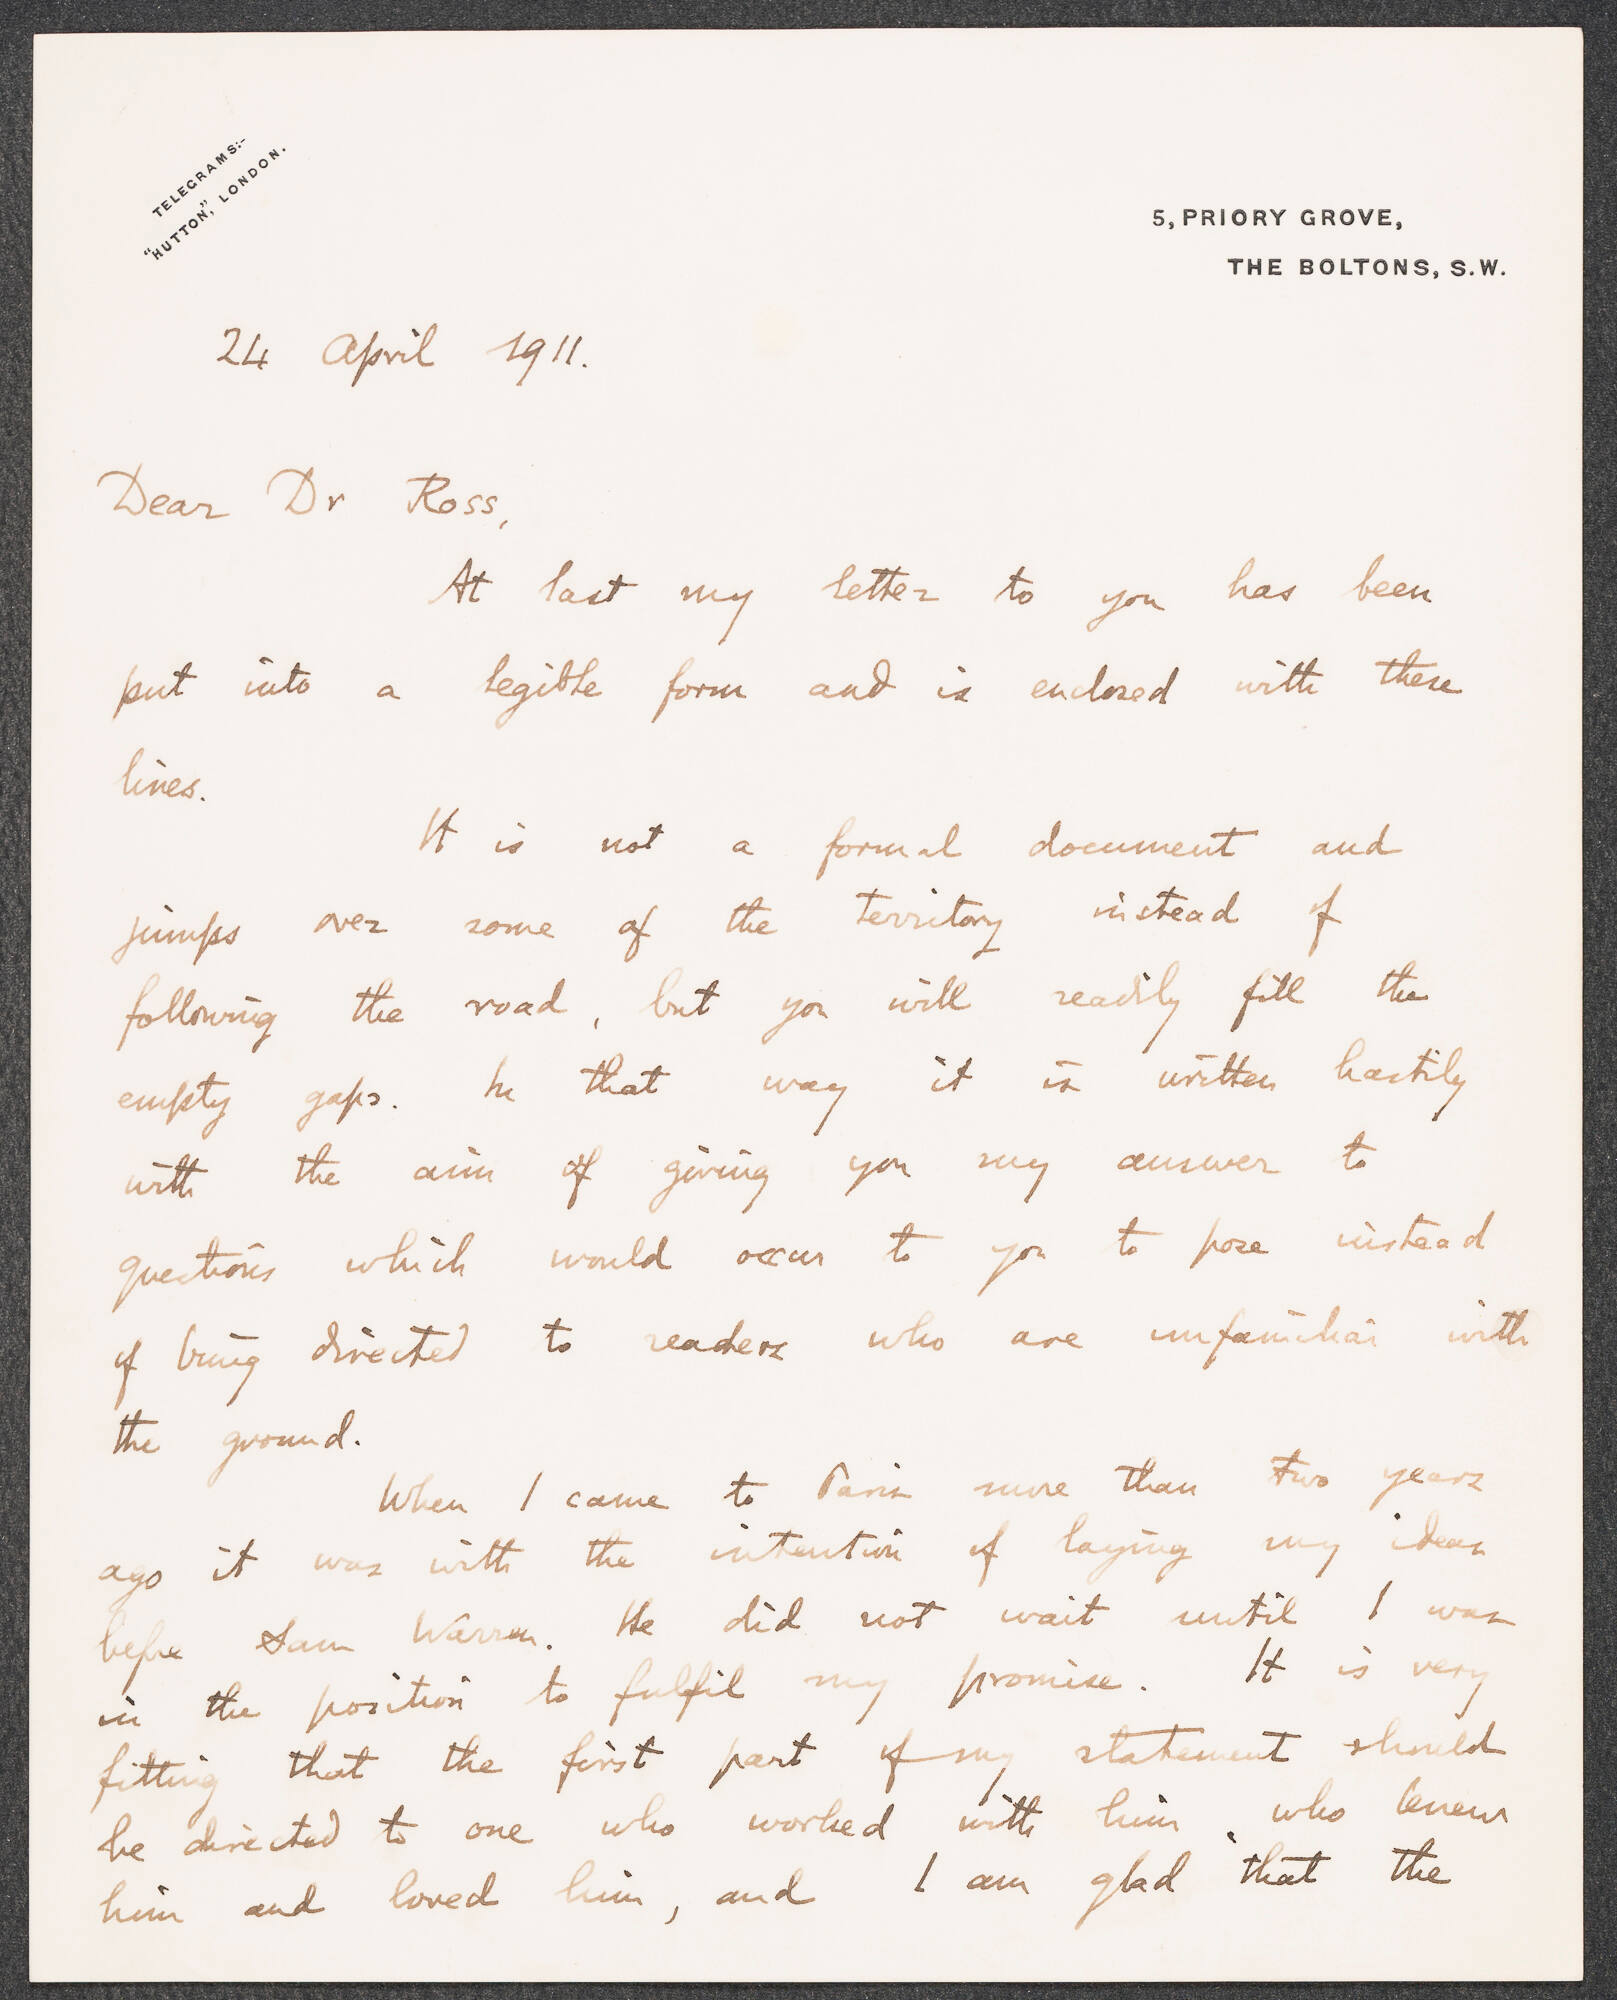 TELEGRAMS:-
"HUTTON," LONDON.
5, PRIORY GROVE,
THE BOLTONS, S.W.
24 April 1911.
Dear Dr Ross,
At last my letter to you has been
put into a legible form and is enclosed with these
lines.
It is not a formal document and
jumps over some of the territory instead of
following the road, but you will readily fill the
empty gaps. In that way it is written hastily
with the aim of giving you my answer to
questions which would occur to you to pose instead
of being directed to readers who are unfamiliar with
the ground.
When I came to Paris more than two years
ago it was with the intention of laying my ideas
before Sam Warren. He did not wait until I was
in the position to fulfil my promise. It is very
fitting that the first part of my statement should
be directed to one who worked with him, who knew
him and loved him, and I am glad that the